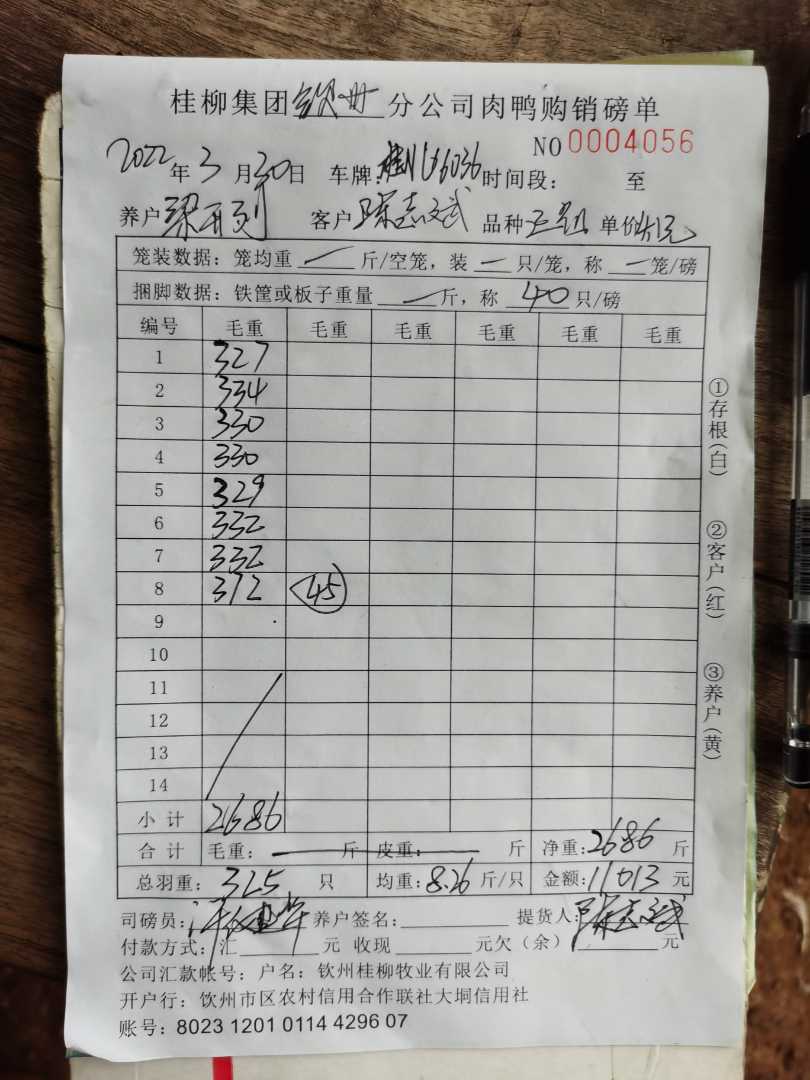 桂柳集团钦州分公司肉鸭购销磅单
NO 0004056
2022年3月30日 车牌:桂N66036 时间段: 至
养户 梁 客户 陈志斌 品种 单价4.1元
笼装数据:笼均重 — 斤/空笼,装 — 只/笼,称 — 笼/磅
捆脚数据:铁筐或板子重量 — 斤,称 40 只/磅
编号 毛重 毛重 毛重 毛重 毛重 毛重
1 327
2 334
3 330
4 330
5 329
6 332
7 332
8 372 45
9
10
11
12
13
14
小计 2686
合计 毛重: 斤 皮重: 斤 净重:2686 斤
总羽重: 325 只 均重:8.26 斤/只 金额:11013 元
司磅员: 养户签名: 提货人:陈志斌
付款方式:汇 元 收现 元欠(余) 元
公司汇款帐号:户名:钦州桂柳牧业有限公司
开户行:饮州市区农村信用合作联社大垌信用社
账号:8023 1201 0114 4296 07
①存根(白)
②客户(红)
③养户(黄)